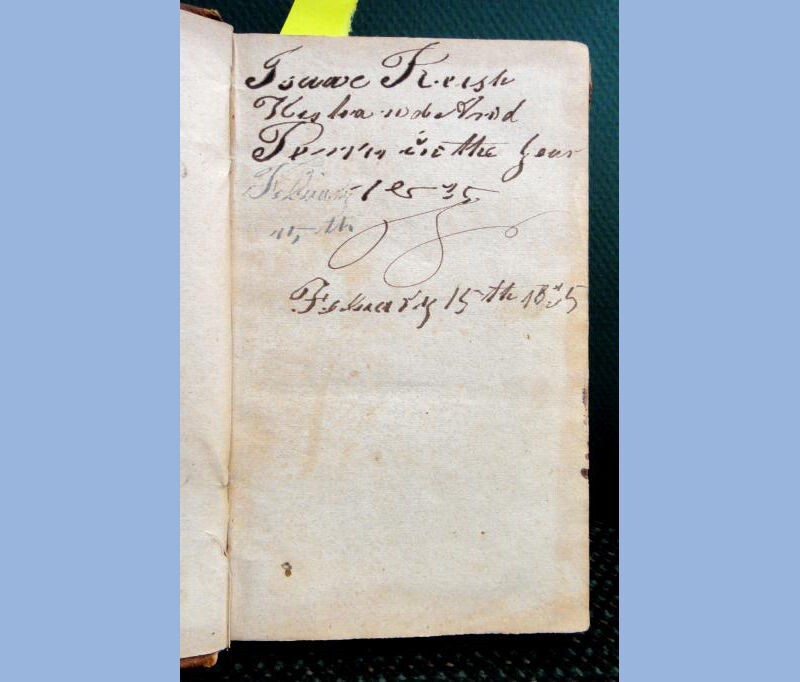 Isaac Keish
His hand And
Penn in the year
February 1835
15 th
February 15th 1835